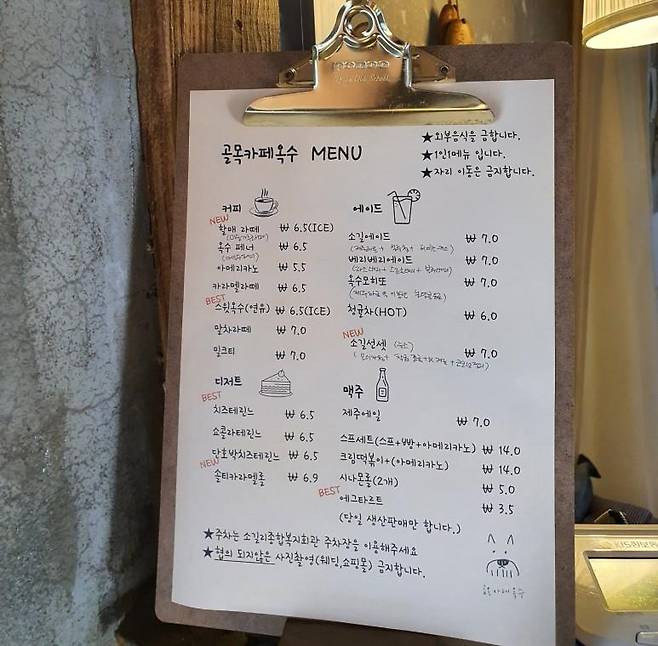 골목카페옥수 MENU
★외부음식을 금합니다.
★1인1메뉴 입니다.
★자리 이동은 금지합니다.
커피
NEW
할매 라떼 ₩ 6.5(ICE)
옥수 페너 ₩ 6.5
아메리카노 ₩ 5.5
카라멜라떼 ₩ 6.5
BEST
스윗옥수(연유) ₩ 6.5(ICE)
말차라떼 ₩ 7.0
밀크티 ₩ 7.0
디저트
BEST
치즈테린느 ₩ 6.5
쇼콜라테린느 ₩ 6.5
단호박치즈테린느 ₩ 6.5
NEW
솔티카라멜롤 ₩ 6.9
에이드
소길에이드 ₩ 7.0
베리베리에이드 ₩ 7.0
옥수모히또 ₩ 7.0
청귤차(HOT) ₩ 6.0
NEW
소길선셋 ₩ 7.0
맥주
제주에일 ₩ 7.0
스프세트(스프+빵+아메리카노) ₩ 14.0
크림떡볶이+(아메리카노) ₩ 14.0
시나몬롤(2개) ₩ 5.0
BEST
에그타르트 ₩ 3.5
(당일 생산판매만 합니다.)
★주차는 소길리종합복지회관 주차장을 이용해주세요
★협의 되지않은 사진촬영(웨딩,쇼핑몰) 금지합니다.